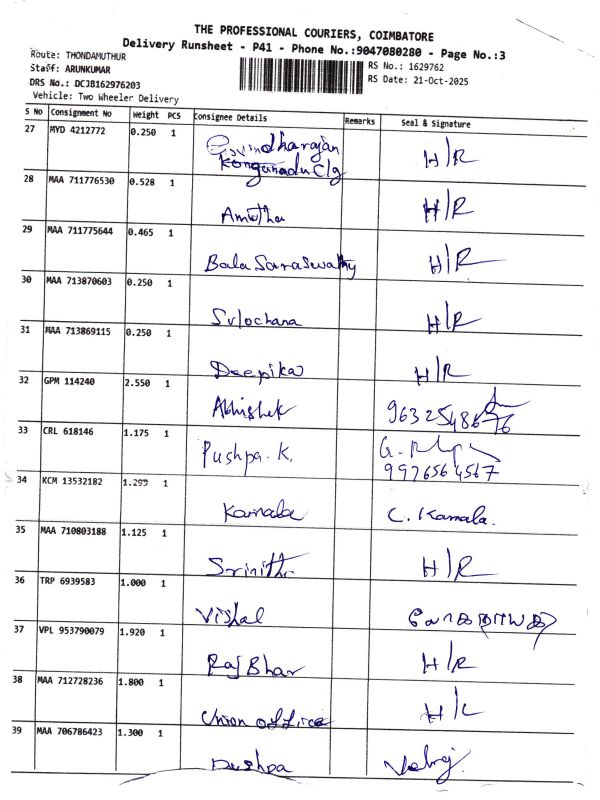 THE PROFESSIONAL COURIERS, COIMBATORE
Delivery Runsheet - P41 - Phone No.:9047080280 - Page No.:3
Route: THONDAMUTHUR
Staff: ARUNKUMAR
DRS No.: DCJB162976203
Vehicle: Two Wheeler Delivery
RS No.: 1629762
RS Date: 21-Oct-2025
S No Consignment No Weight PCS Consignee Details Remarks Seal & Signature
27 MYD 4212772 0.250 1 Govindharajan H/R
Kongunadu Clg
28 MAA 711776530 0.528 1 Amutha H/R
29 MAA 711775644 0.465 1 Bala Saraswathy H/R
30 MAA 713870603 0.250 1 Sulochana H/R
31 MAA 713869115 0.250 1 Deepika H/R
32 GPM 114240 2.550 1 Abhishek
33 CRL 618146 1.175 1 Pushpa. K.
9976564567
34 KCM 13532182 1.295 1 Kamala C. Kamala.
35 MAA 710803188 1.125 1 Srinithi H/R
36 TRP 6939583 1.000 1 Vishal
37 VPL 953790079 1.920 1 Raj Bhar H/R
38 MAA 712728236 1.800 1 Union office
39 MAA 706786423 1.300 1 Pushpa